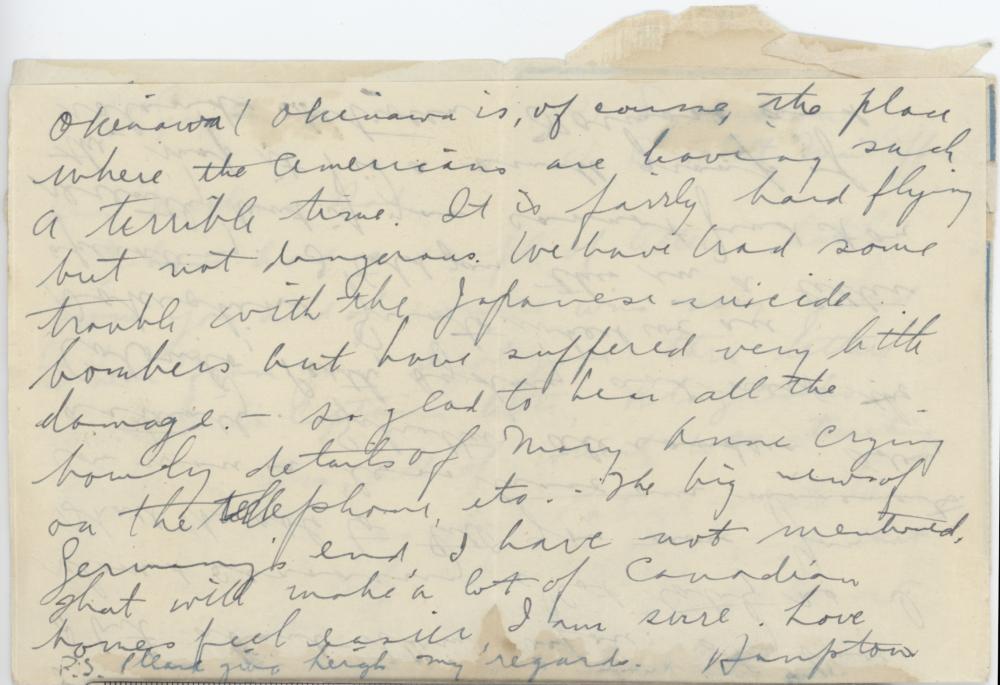 Okinawa! Okinawa is, of course, the place
where the Americans are having such
a terrible time. It is fairly hard flying
but not dangerous. We have had some
trouble with the Japanese suicide
bombers but have suffered very little
damage. - So glad to hear all the
homely details of Mary Anne crying
on the telephone, etc. - The big news of
Germany's end, I have not mentioned.
That will make a lot of Canadian
homes feel easier I am sure. Love
Hampton
P.S. Please give Leigh my regards.